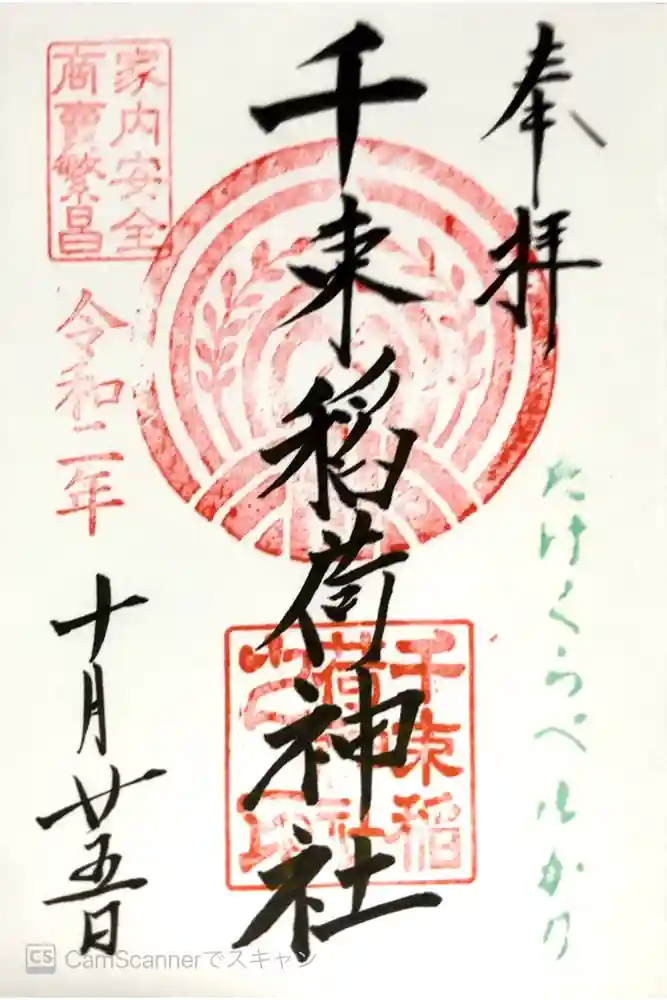 奉拝
たけくらべゆかりの
千束稲荷神社
千束稲
荷神社
之印
家内安全
商賣繁昌
令和二年
十月廿五日
CS CamScannerでスキャン